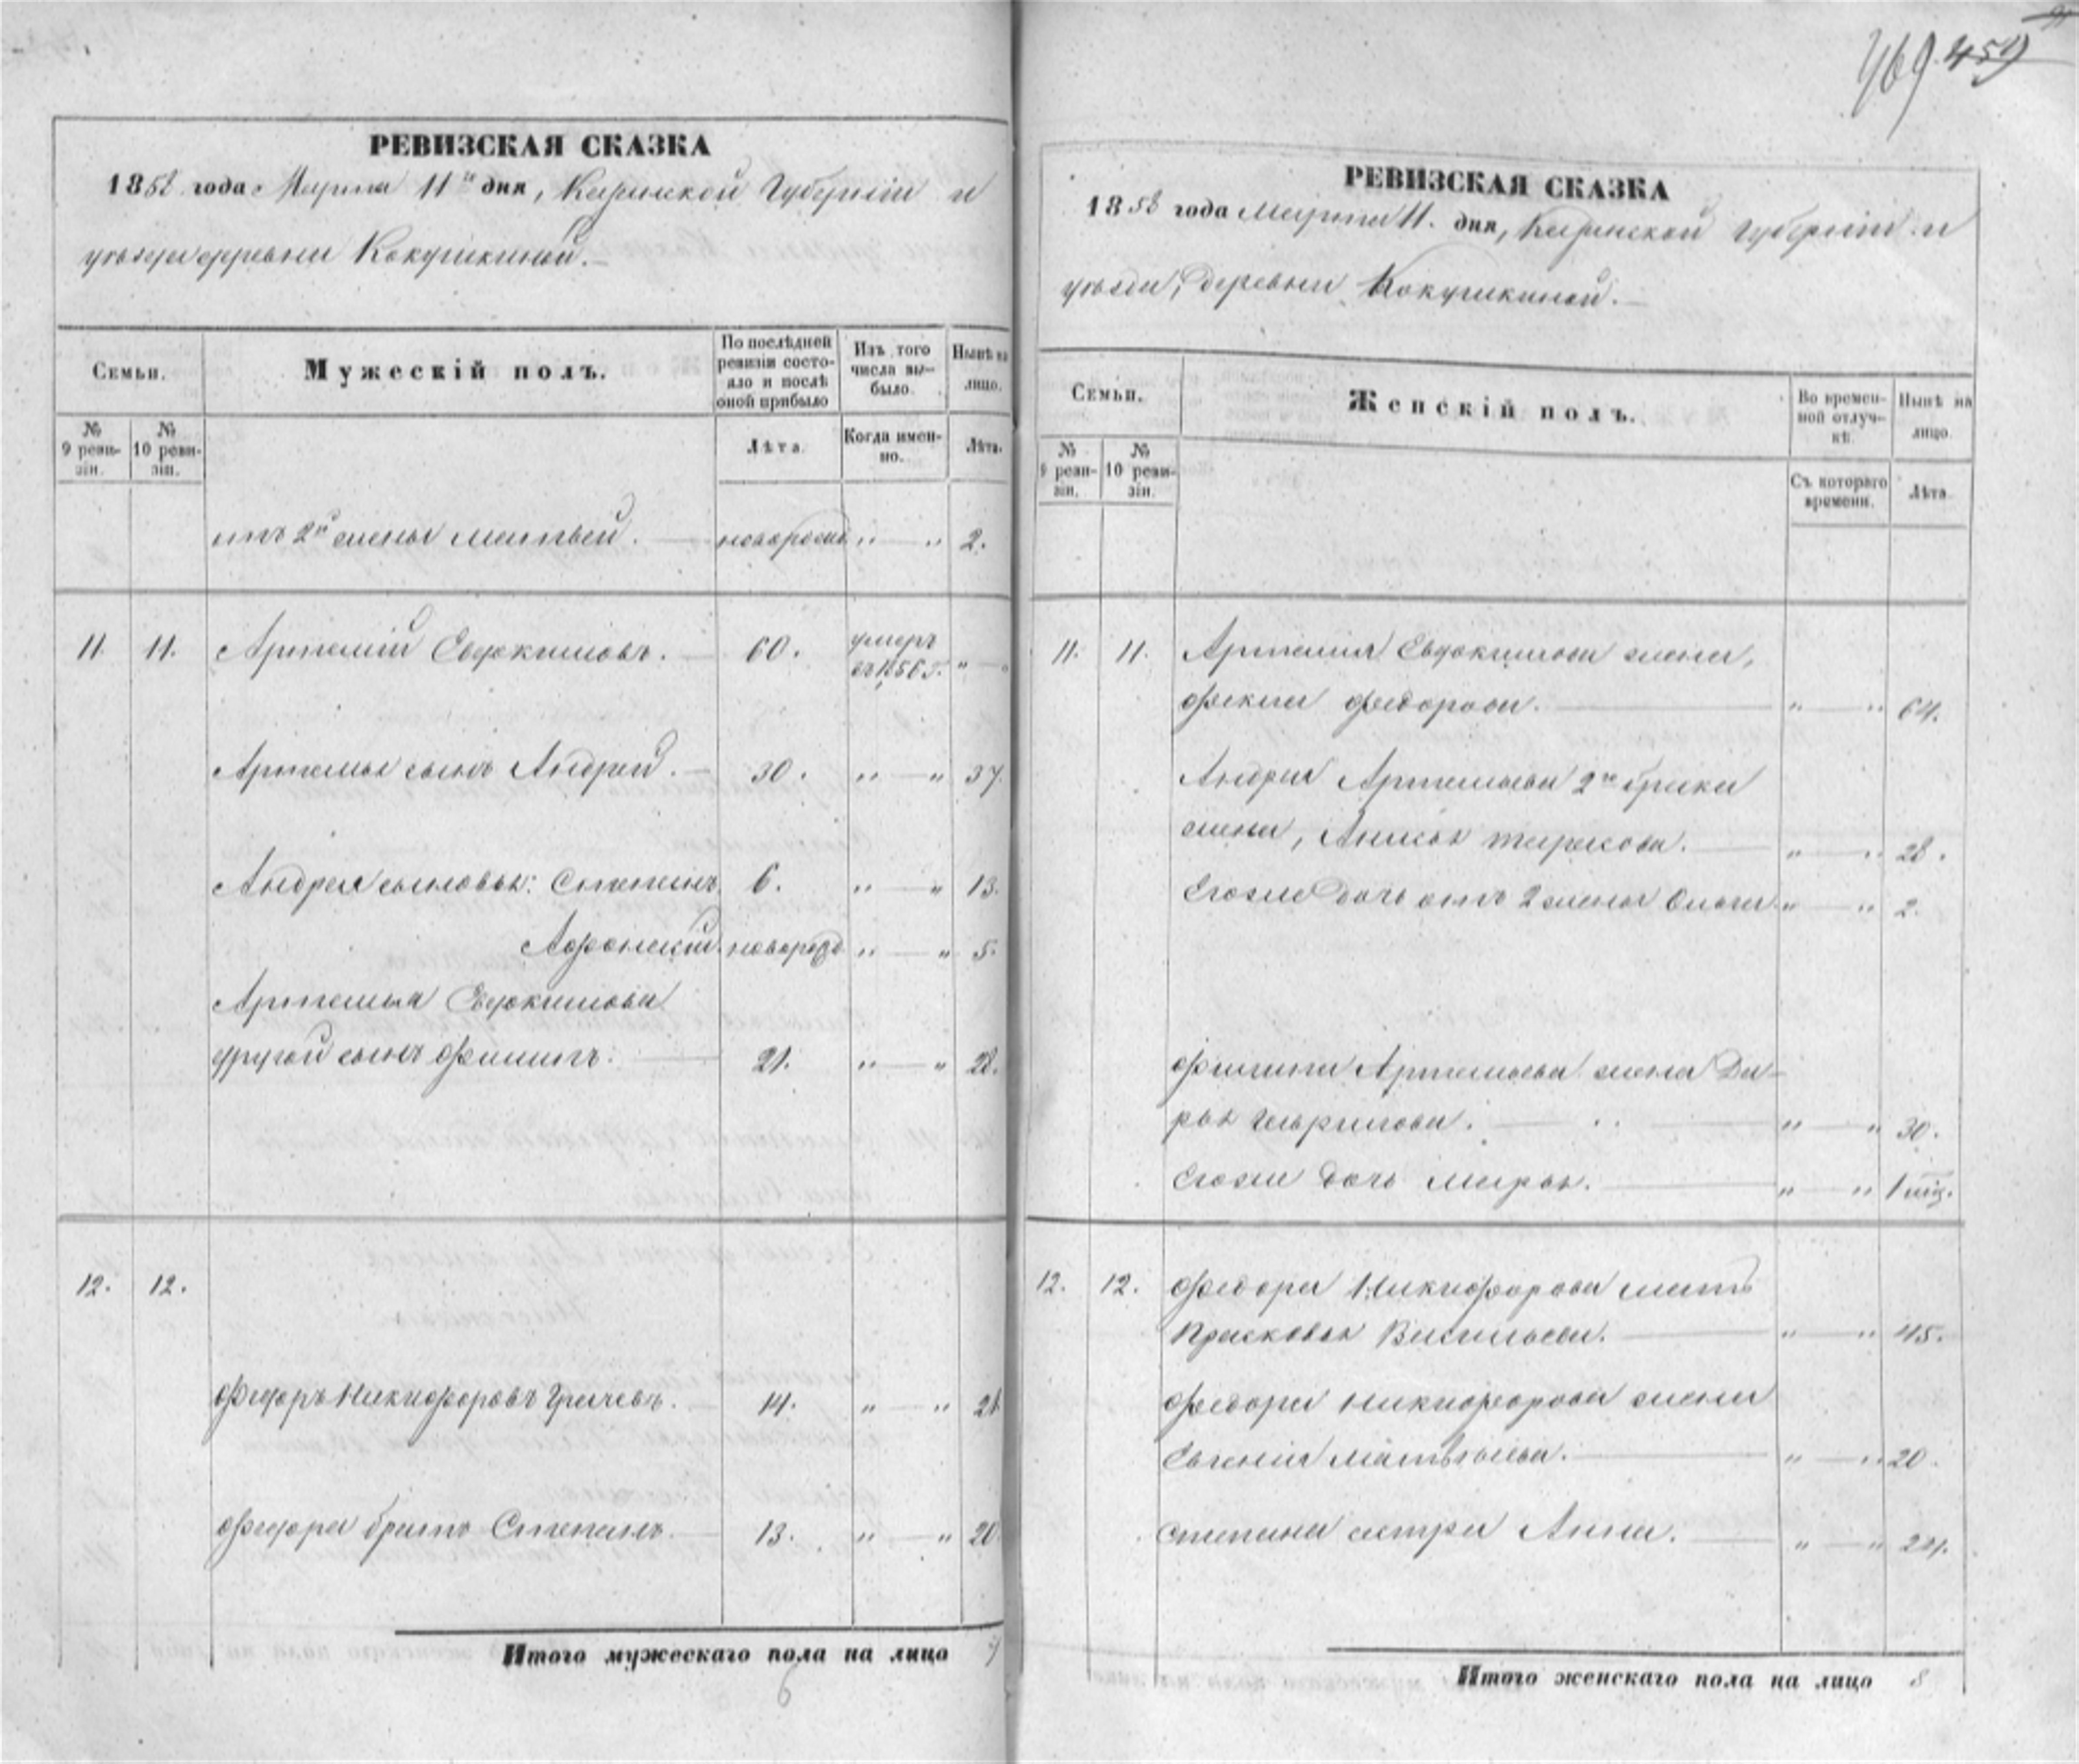 469. 459
РЕВИЗСКАЯ СКАЗКА
1858 года Марта 11го дня, Казанской Губернiи и
уѣзда деревни Кокушкиной.
Семьи.
Мужескiй полъ.
По послѣдней ревизiи состояло и послѣ оной прибыло
Изъ того числа выбыло.
Нынѣ на лицо.
№ 9 ревизiи.
№ 10 ревизiи.
Лѣта.
Когда именно.
Лѣта.
отъ 2й жены Матвей. новорожд " — " 2.
11. 11. Артемiй Евдокимовъ. 60. умеръ въ 1856 г. " — "
Артемья сынъ Андрей. 30. " — " 37.
Андрея сыновья: Степанъ 6. " — " 13.
Афонасiй. новорожд " — " 5.
Артемья Евдокимова
другой сынъ Филипъ. 21. " — " 28.
12. 12.
Федоръ Никифоровъ 14. " — " 21
Федора братъ Степанъ. 13. " — " 20.
Итого мужескаго пола на лицо 7
6
РЕВИЗСКАЯ СКАЗКА
1858 года Марта 11. дня, Казанской Губернiи и
уѣзда, деревни Кокушкиной.
Семьи.
Женскiй полъ.
Во временной отлучкѣ.
Нынѣ на лицо.
№ 9 ревизiи.
№ 10 ревизiи.
Съ котораго времени.
Лѣта.
11. 11. Артемiя Евдокимова жена,
Фекла Федорова. " — " 64.
Андрея Артемьева 2го брака
жена, Анисья Тарасова. " — " 28.
Егоже дочь отъ 2 жены Ольга " — " 2.
Филипа Артемьева жена Да-
рья Гаврилова. " — " 30.
Егоже дочь Марья. " — " 1 мѣ.
12. 12. Федора Никифорова мать
Прасковья Васильева. " — " 45.
Федора Никифорова жена
Евгенiя Матвѣева. " — " 20.
Степана сестра Анна. " — " 24.
Итого женскаго пола на лицо 8